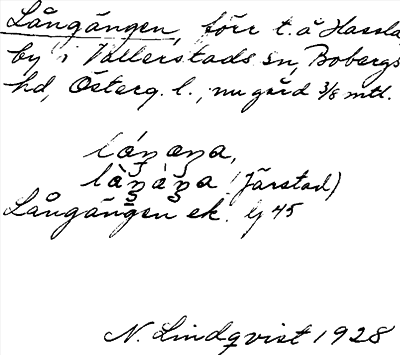 Långängen, förr t. å Hassla
by i Vallerstads sn, Bobergs
hd, Österg. l., nu gård 3/8 mtl.
(Järstad)
Långängen ek. Ij 45
N. Lindqvist 1928